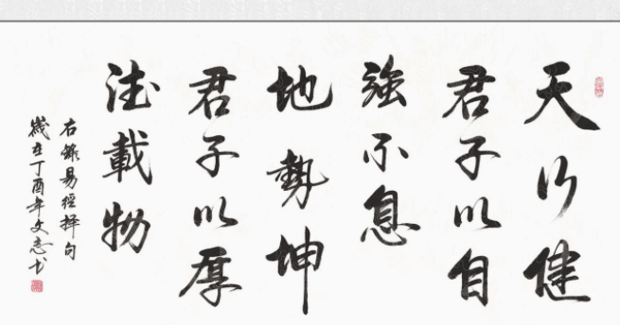 天行健
君子以自
強不息
地勢坤
君子以厚
德載物
右錄易經擇句
歲在丁酉年文志书